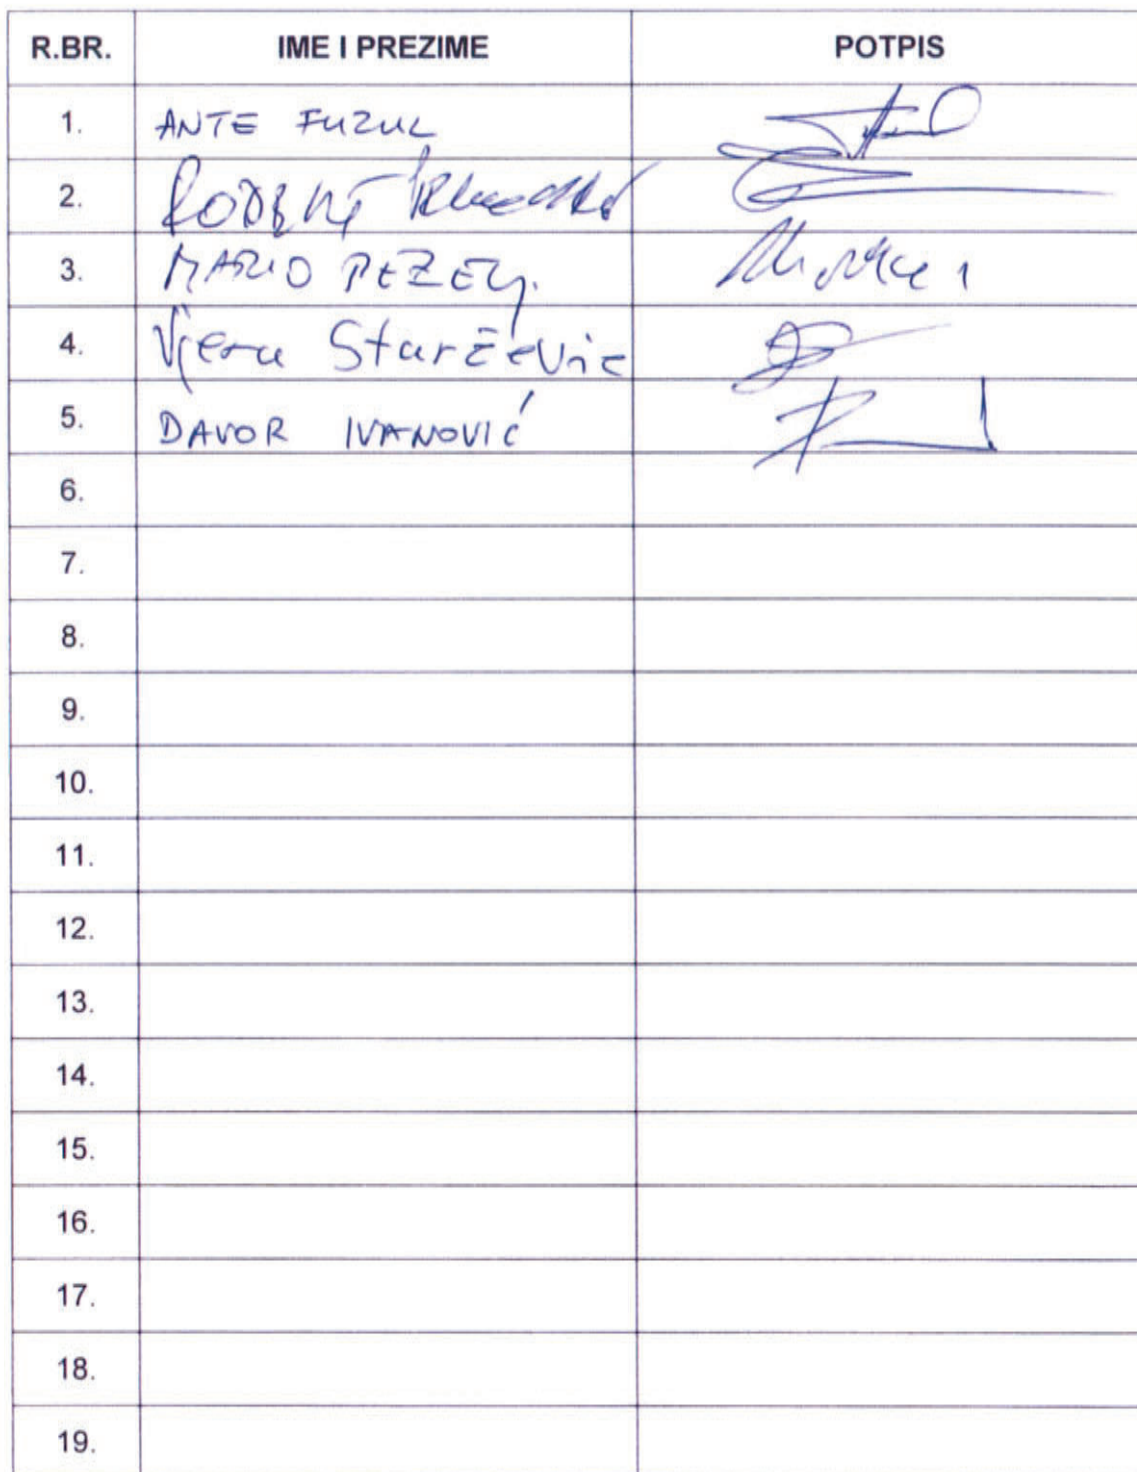 R.BR. IME I PREZIME POTPIS
1. ANTE FUZUL
2.
3. MARIO PEZELJ
4. Vjera Starčević
5. DAVOR IVANOVIĆ
6.
7.
8.
9.
10.
11.
12.
13.
14.
15.
16.
17.
18.
19.